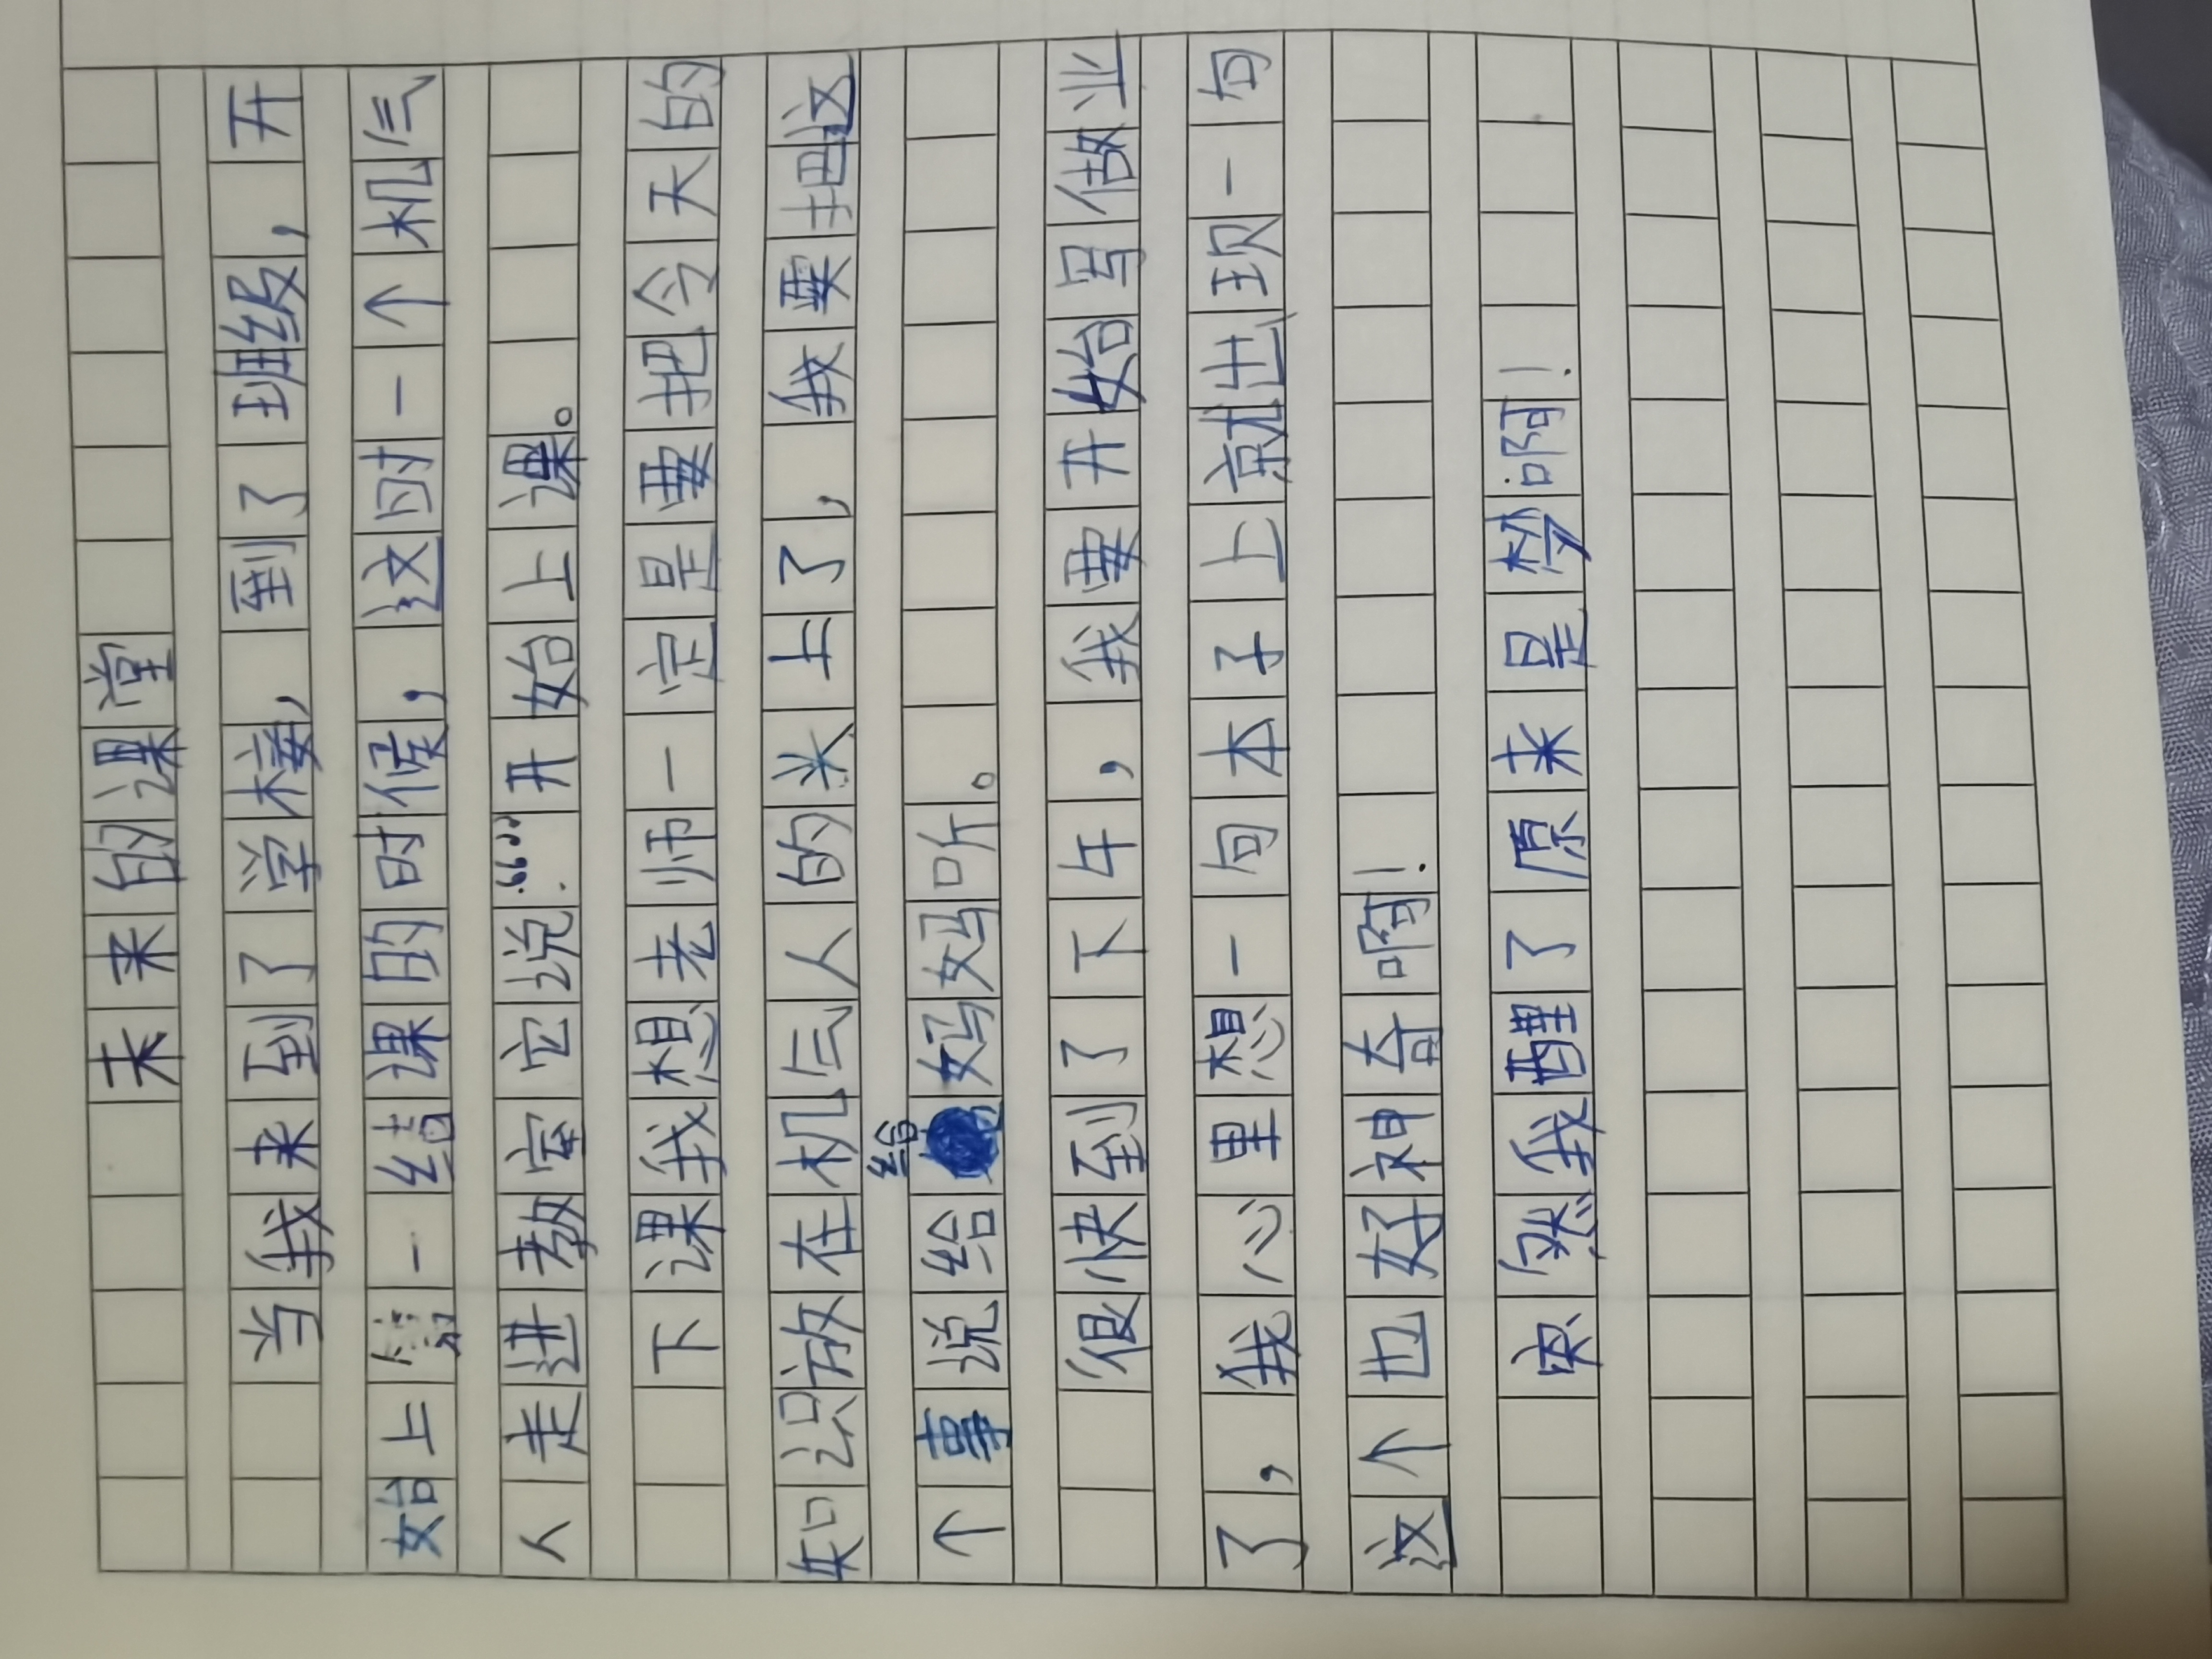 未来的课堂
当我来到了学校，到了班级，开
始上一结课的时候，这时一个机亽
人走进教室它说:“”开始上课。
下课我想老师一定是要把今天的
知识放在机亽人的米上了，我要把这
个事说给给妈妈听。
很快到了下午，我要开始写做业
了，我心里想一句本子上就出现一句
这个也好神奇啊！
突然我醒了原来是梦啊！